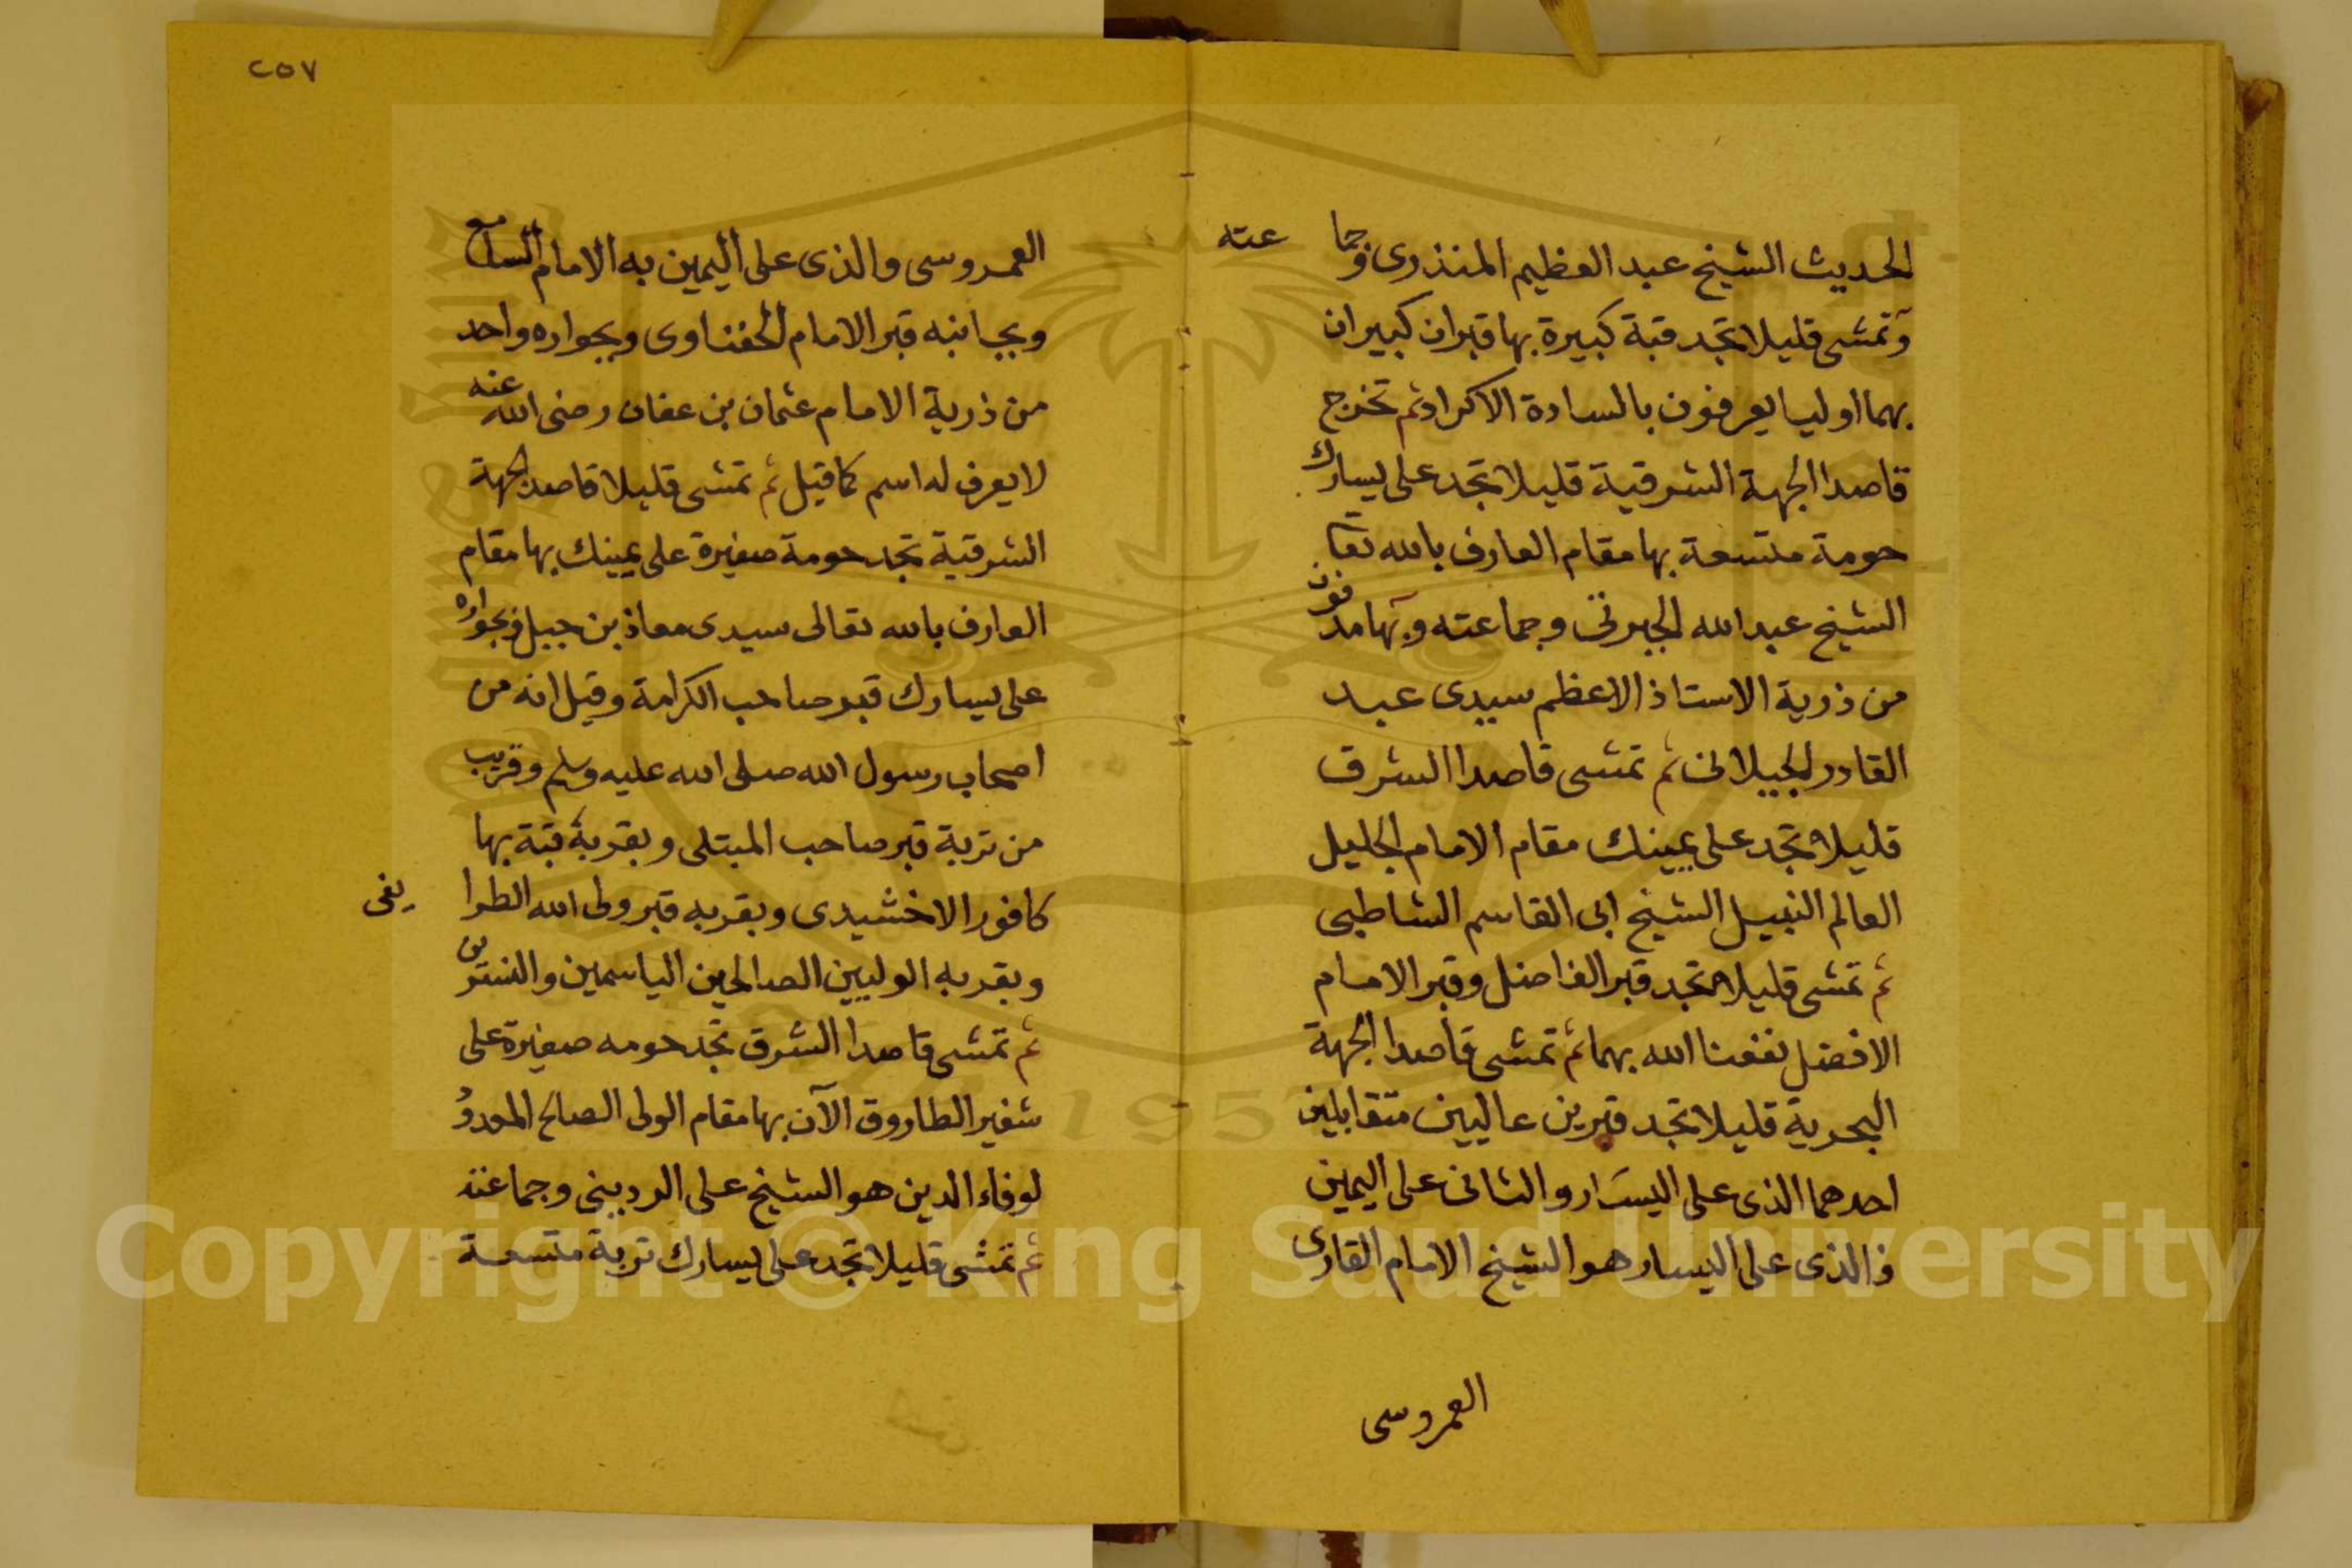 الحديث الشيخ عبد العظيم المنذرى وجما عته
وتمشى قليلا تجد قبة كبيرة بها قبران كبيران
بهما اوليا يعرفون بالسادة الاكراد ثم تخرج
قاصدا الجهة الشرقية قليلا تجد على يسارك
حومة متسعة بها مقام العارف بالله تعا
الشيخ عبد الله الجبرتى وجماعته وبها مدفون
من ذرية الاستاذ الاعظم سيدى عبد
القادر الجيلانى ثم تمشى قاصدا الشرق
قليلا تجد على يمينك مقام الامام الجليل
العالم النبيل الشيخ ابى القاسم الشاطبى
ثم تمشى قليلا تجد قبر الفاضل وقبر الامام
الافضل نفعنا الله بهما ثم تمشى قاصدا الجهة
البحرية قليلا تجد قبرين عاليين متقابلين
احدهما الذى على اليسار والثانى على اليمين
فالذى على اليسار هو الشيخ الامام القارى
العمروسى
٢٥٧
العمروسى والذى على اليمين به الامام
وبجانبه قبر الامام الحفناوى وبجواره واحد
من ذرية الامام عثمان بن عفان رضى الله عنه
لا يعرف له اسم كما قيل ثم تمشى قليلا قاصد الجهة
الشرقية تجد حومة صغيرة على يمينك بها مقام
العارف بالله تعالى سيدى معاذ بن جبل وبجواره
على يسارك قبر صاحب الكرامة وقيل انه من
اصحاب رسول الله صلى الله عليه وسلم وقريب
من تربة قبر صاحب المبتلى وبقربه قبة بها
كافور الاخشيدى وبقربه قبر ولى الله الطرا يفى
وبقربه الوليين الصالحين الياسمين والنسترين
ثم تمشى قاصدا الشرق تجد حومه صغيرة على
شفير الطاروق الآن بها مقام الولى الصالح
لوفاء الدين هو الشيخ على الردينى وجماعته
ثم تمشى قليلا تجد على يسارك تربة متسعة
Copyright © King Saud University
1957